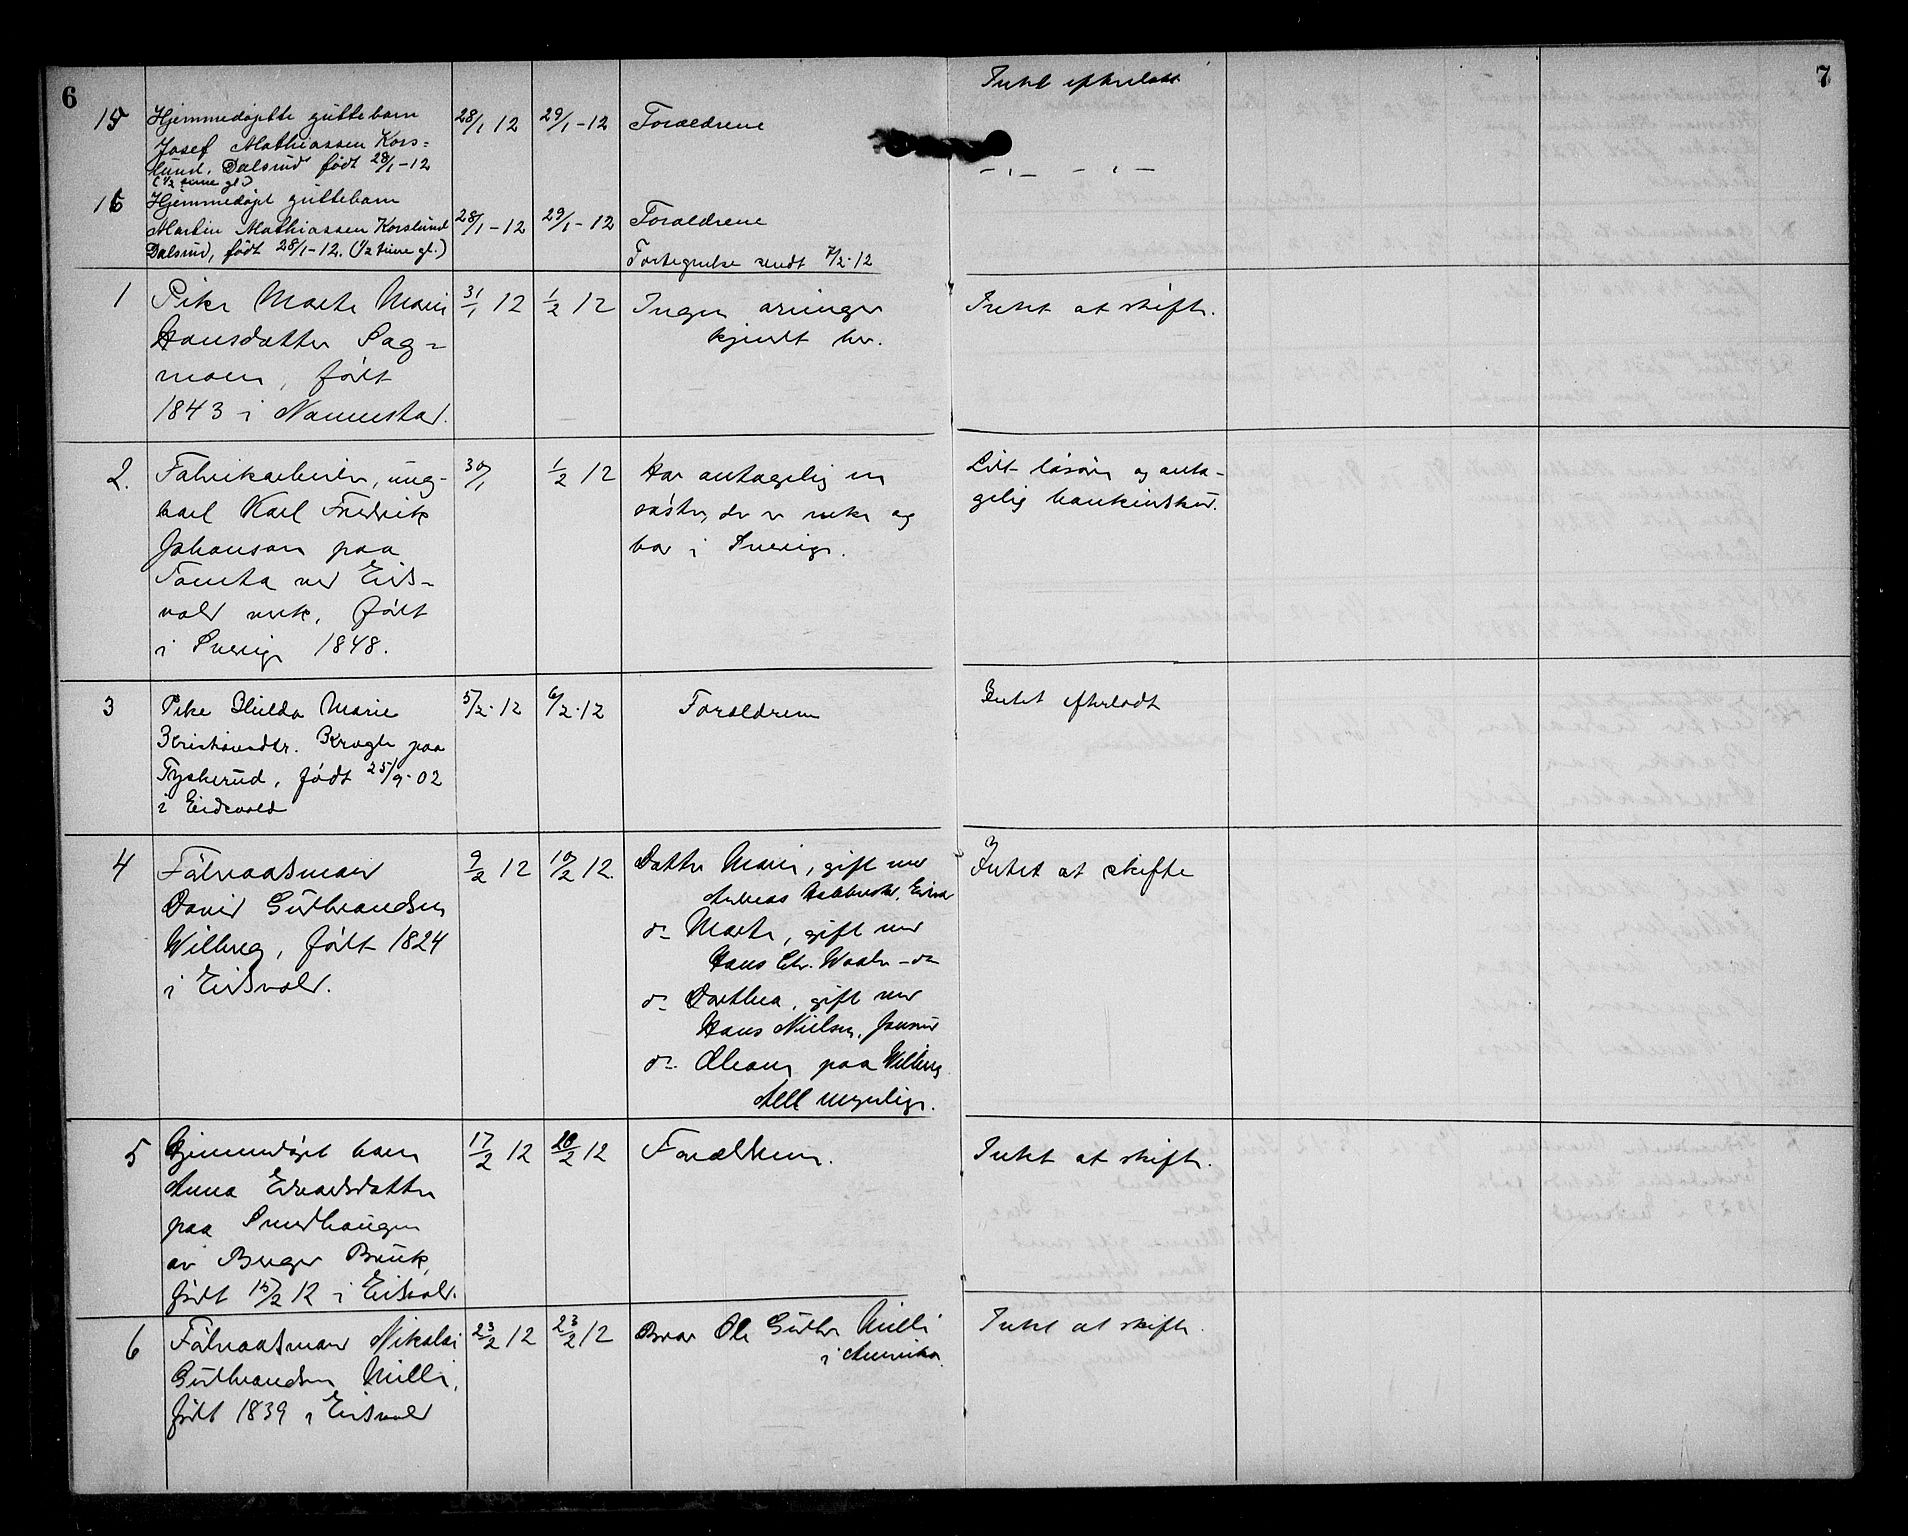 6
7
15
Hjemmedøpte guttebarn
Josef Mathiassen Kors-
lund, Dalsrud født 28/1-12
(1/2 time gl)
28/1 12
29/1-12
Forældrene
Intet efterladt
16
Hjemmedøpt guttebarn
Martin Mathiassen Korslund
Dalsrud, født 28/1-12. (1/2 time gl.)
28/1-12
29/1-12
Forældrene
Fortegnelse sendt 7/2-12
- " - - " -
1
Pike Marte Marie
Hansdatter Sag-
moen, født
1843 i Nannestad.
31/1 12
1/2 12
Ingen arvinger
kjendt her.
Intet at skifte.
2.
Fabrikarbeider, ung-
karl Karl Fredrik
Johanson paa
Tomta ved Eids-
vold verk, født
i Sverige 1848.
30/1
1/2 12
Har antagelig en
søster, der er enke og
bor i Sverige.
Litt løsøre og anta-
gelig bankindskud.
3
Pike Hilda Marie
Kristiansdtr. Krogh paa
Tyskerud, født 25/9-02
i Eidsvold
5/2-12
6/2-12
Forældrene
Intet efterladt
4
Føderaadsmand
David Gudbrandsen
Wilberg, født 1824
i Eidsvold.
9/2 12
10/2 12.
Datter Marie, gift med
Andreas
do Marte, gift med
Hans Chr. Waaler - do
do Dorthea, gift med
Hans Nielsen,
do Oleane paa Wilberg
Alle myndige.
Intet at skifte
5
Hjemmedøpt barn
Anna Edvardsdatter
paa Smedhaugen
av Berger Bruk,
født 15/2 12 i Eidsvold.
17/2 12
20/2 12
Forældrene.
Intet at skifte.
6
Føderaadsmand Nikolai
Gudbrandsen Milli,
født 1839 i Eidsvold
23/2 12
23/2 12
Bror Ole Gudbr. Milli
i Amerika.
Intet at skifte.